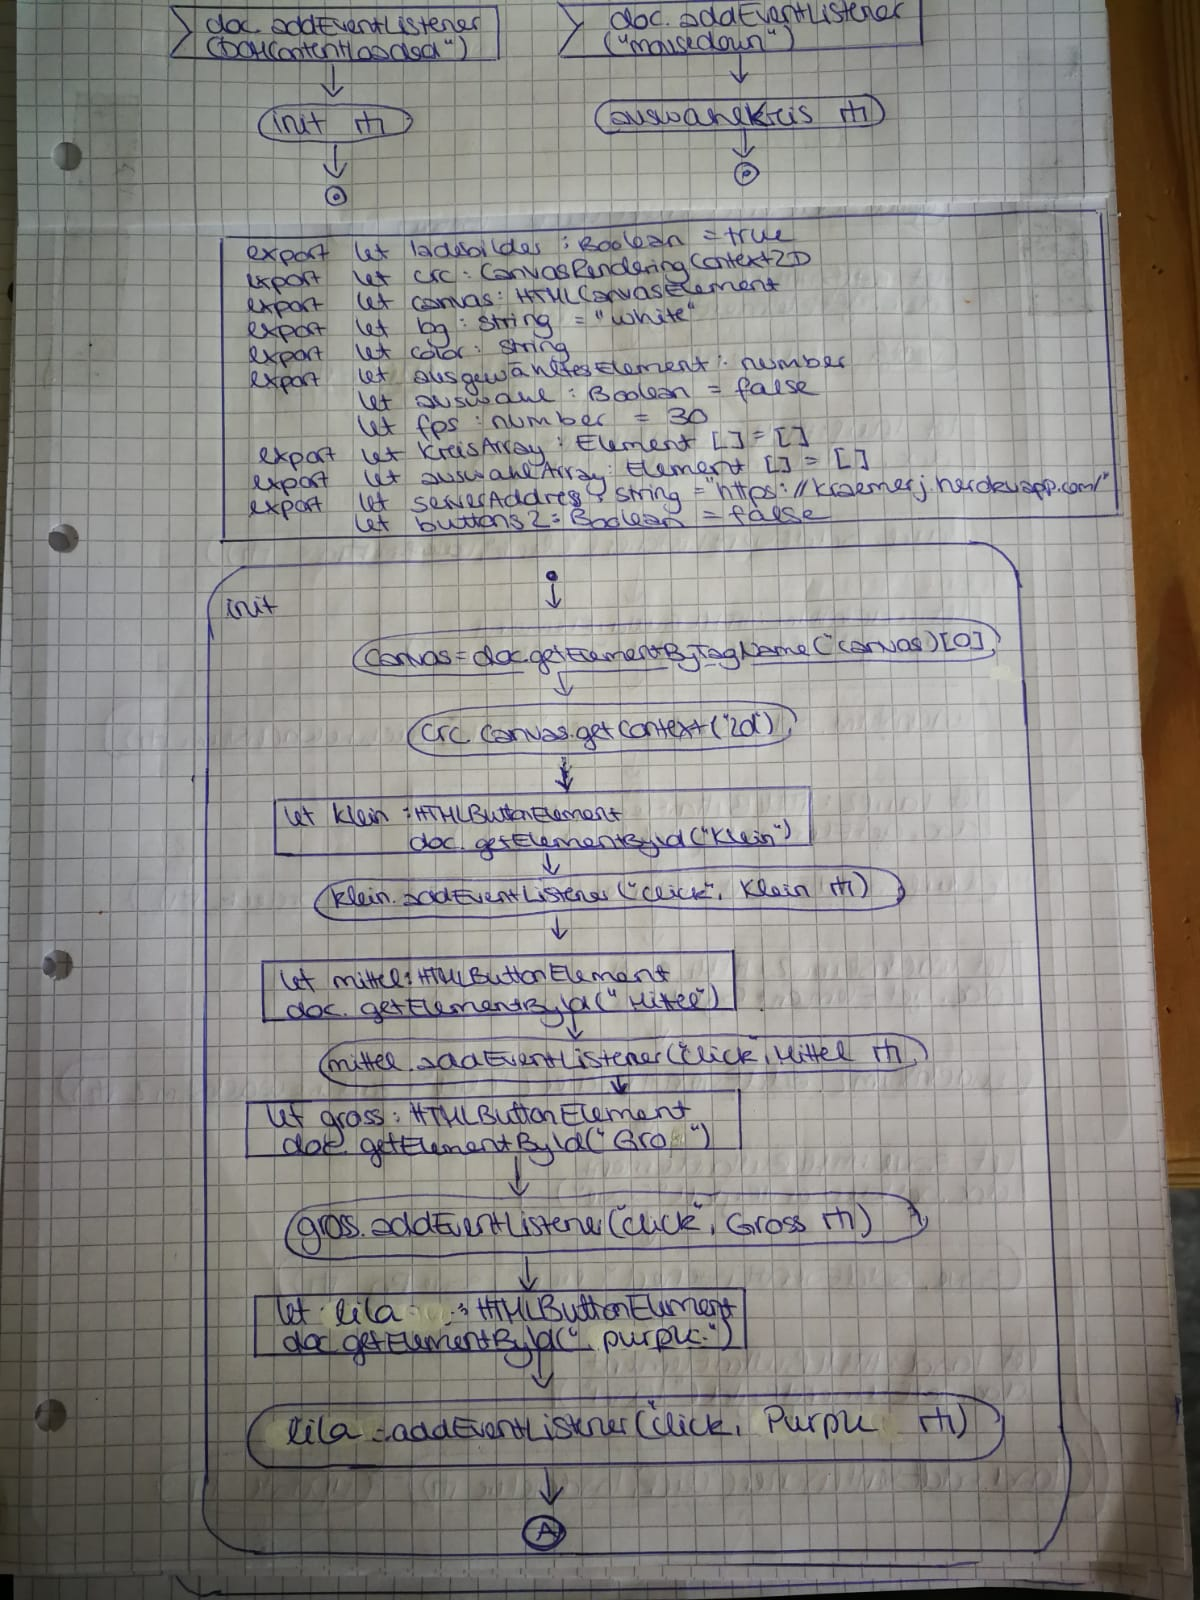 doc.addEventListener
("DOMContentLoaded")
init
doc.addEventListener
("mousedown")
auswahlKreis
export let ladebilder : Boolean = true
export let crc : CanvasRenderingContext2D
export let canvas : HTMLCanvasElement
export let bg : string = "white"
export let color : string
export let ausgewähltesElement : number
let auswahl : Boolean = false
let fps : number = 30
export let KreisArray : Element [] = []
export let auswahlArray : Element [] = []
export let serverAddress : string = "https://kraemerj.herokuapp.com/"
let buttons2 : Boolean = false
init
canvas = doc.getElementByTagName("canvas)[0]
crc canvas.getContext("2d")
let klein : HTMLButtonElement
doc.getElementById("Klein")
klein.addEventListener("click", Klein
let mittel : HTMLButtonElement
doc.getElementById("Mittel")
mittel.addEventListener("click", Mittel
let gross : HTMLButtonElement
doc.getElementById("Gro ")
gross.addEventListener("click", Gross
let lila : HTMLButtonElement
doc.getElementById(" purple ")
lila .addEventListener("click, Purple
A